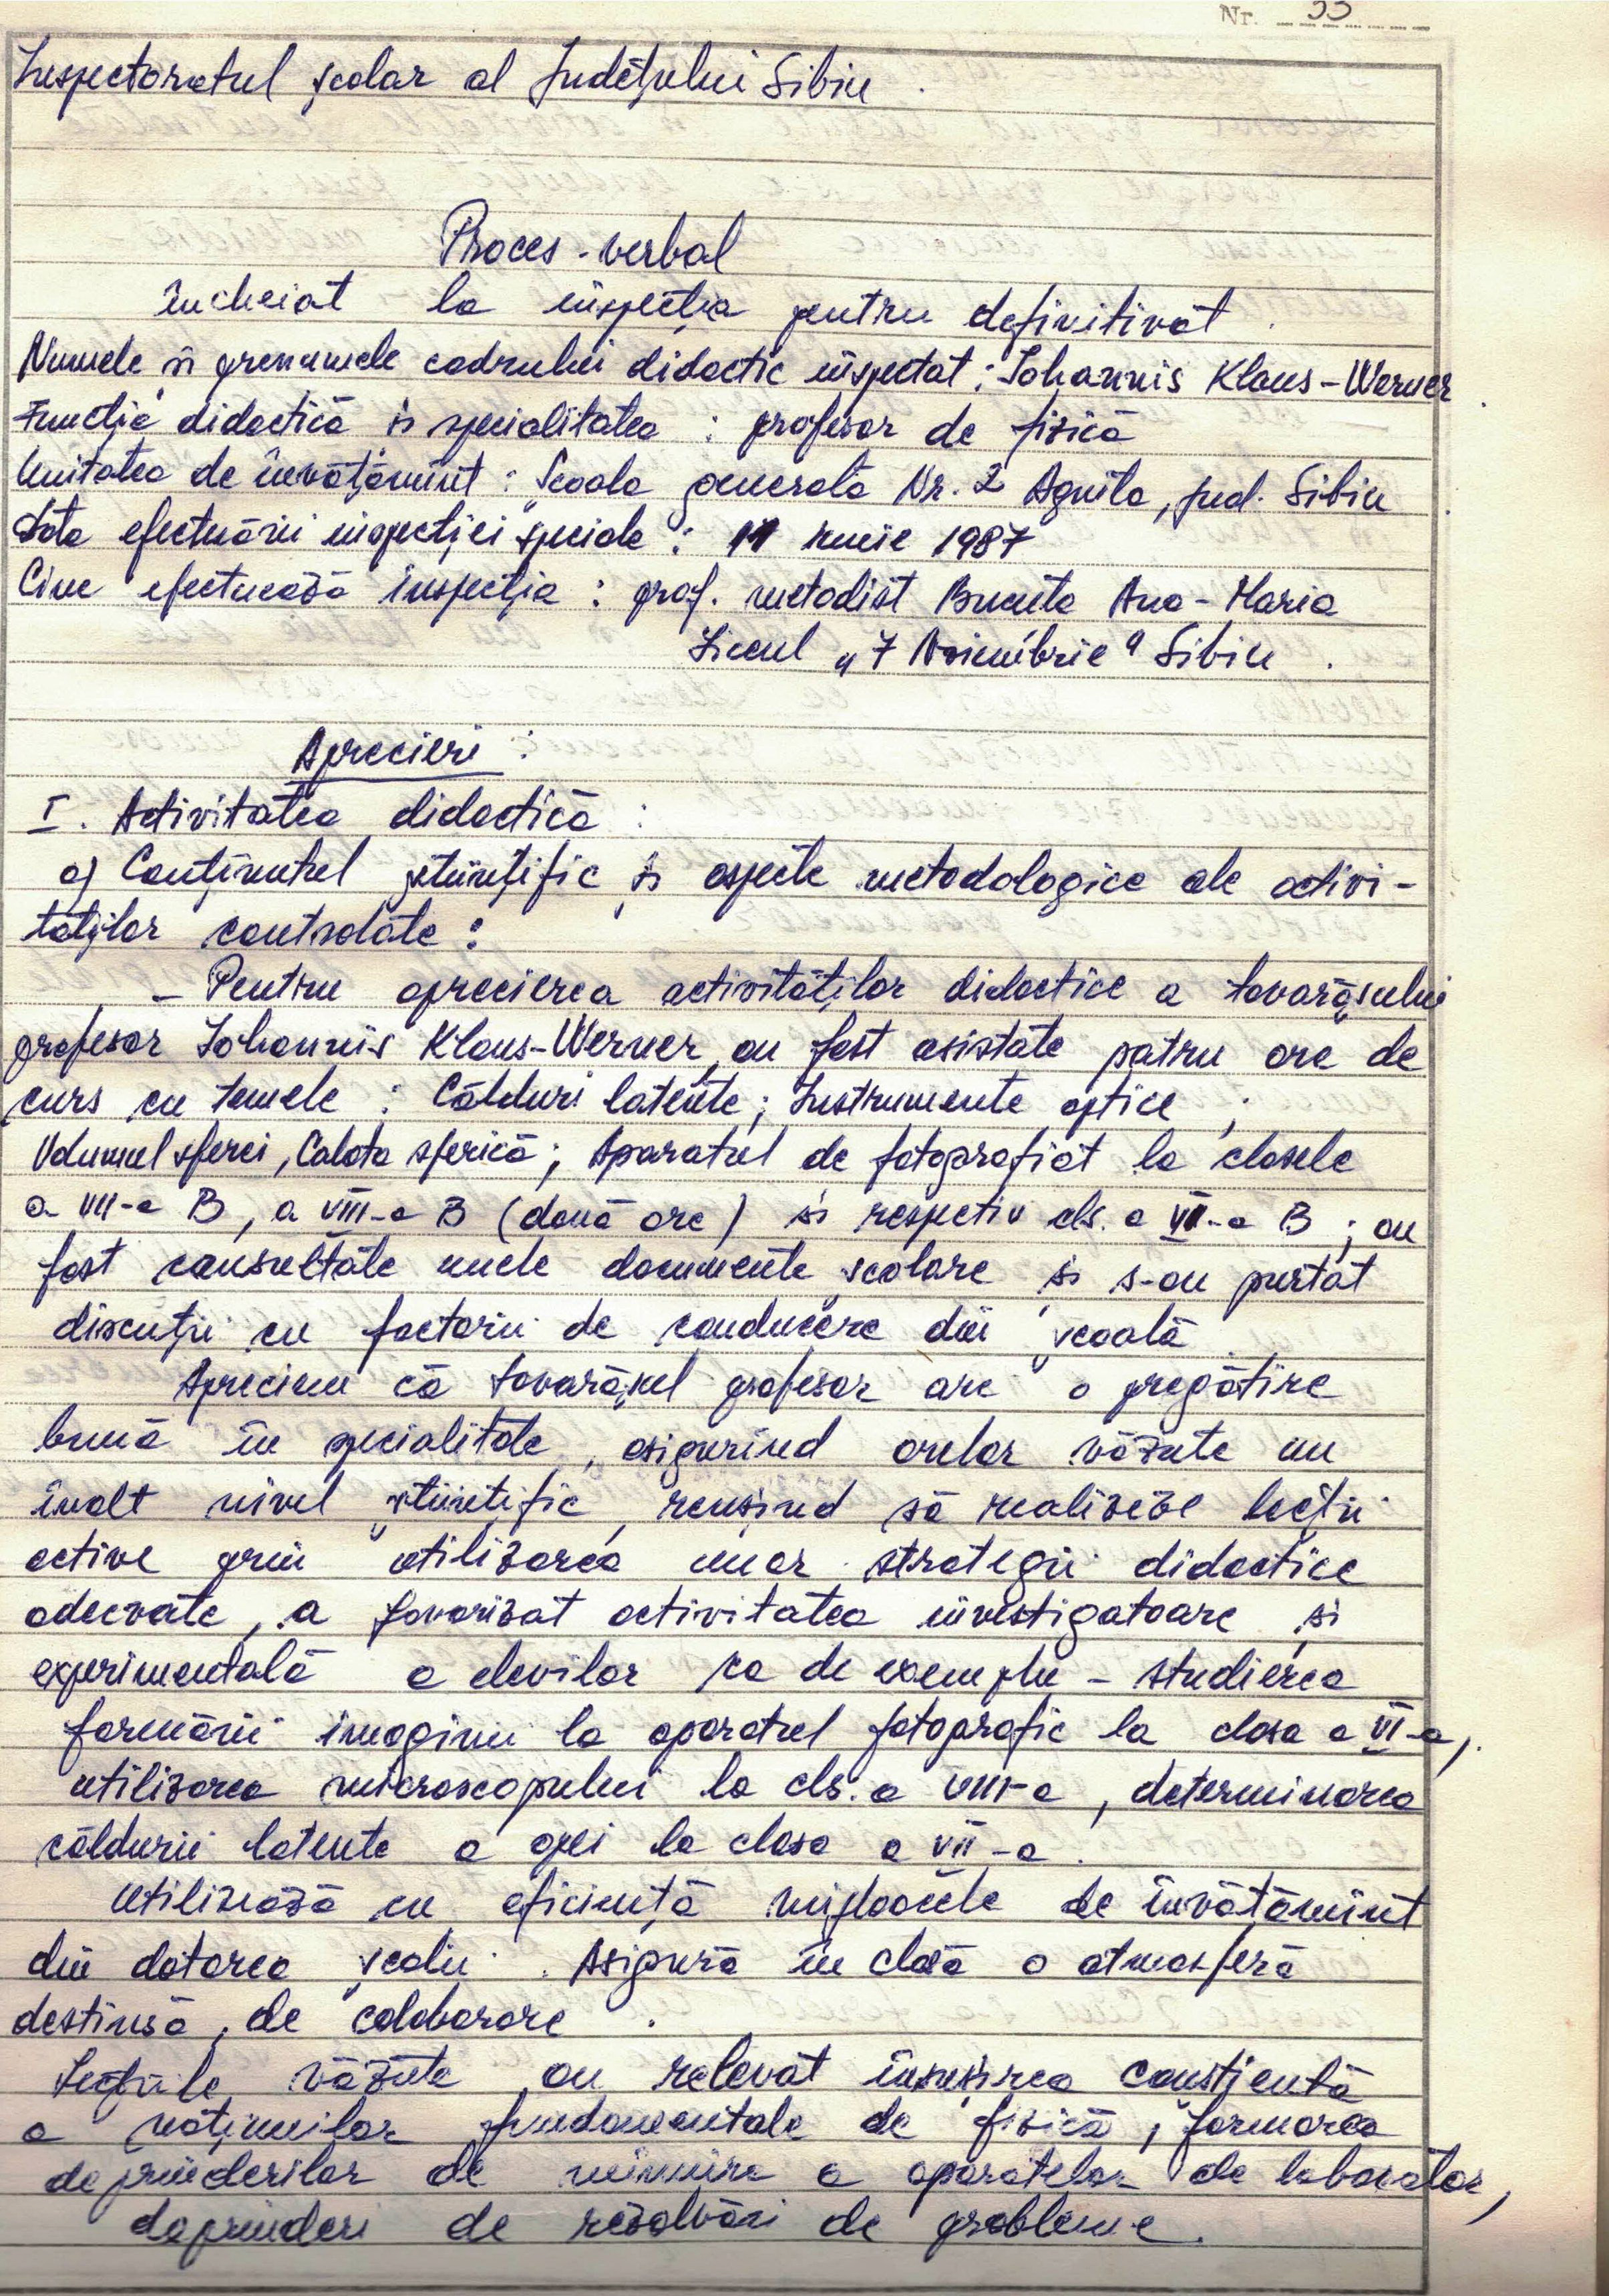 Nr. 33
Inspectoratul școlar al Județului Sibiu.
Proces-verbal
încheiat la inspecția pentru definitivat.
Numele și prenumele cadrului didactic inspectat: Johannis Klaus-Werner
Funcția didactică și specialitatea: profesor de fizică
Unitatea de învățămînt: Școala generală Nr. 2 Agnita, jud. Sibiu
Data efectuării inspecției speciale: 11 iunie 1987
Cine efectuează inspecția: prof. metodist Bucuța Ana-Maria
Liceul „7 Noiembrie" Sibiu.
Aprecieri:
I. Activitatea didactică:
a) Conținutul științific și aspecte metodologice ale activi-
tăților controlate:
- Pentru aprecierea activităților didactice a tovarășului
profesor Johannis Klaus-Werner, au fost asistate patru ore de
curs cu temele: Călduri latente; Instrumente optice;
Volumul sferei, Calota sferică; Aparatul de fotografiat la clasele
a VII-a B, a VIII-a B (două ore) și respectiv cls. a VI-a B; au
fost consultate unele documente școlare și s-au purtat
discuții cu factorii de conducere din școală.
Apreciem că tovarășul profesor are o pregătire
bună în specialitate, asigurînd orelor văzute un
înalt nivel științific, reușind să realizeze lecții
active prin utilizarea unor strategii didactice
adecvate, a favorizat activitatea investigatoare și
experimentală a elevilor ca de exemplu - studierea
formării imaginii la aparatul fotografic la clasa a VI-a,
utilizarea microscopului la cls. a VIII-a, determinarea
căldurii latente a apei la clasa a VII-a.
Utilizează cu eficiență mijloacele de învățămînt
din dotarea școlii. Asigură în clasă o atmosferă
destinsă, de colaborare.
Lecțiile văzute au relevat însușirea conștientă
a noțiunilor fundamentale de fizică, formarea
deprinderilor de mînuire a aparatelor de laborator,
deprinderi de rezolvări de probleme.